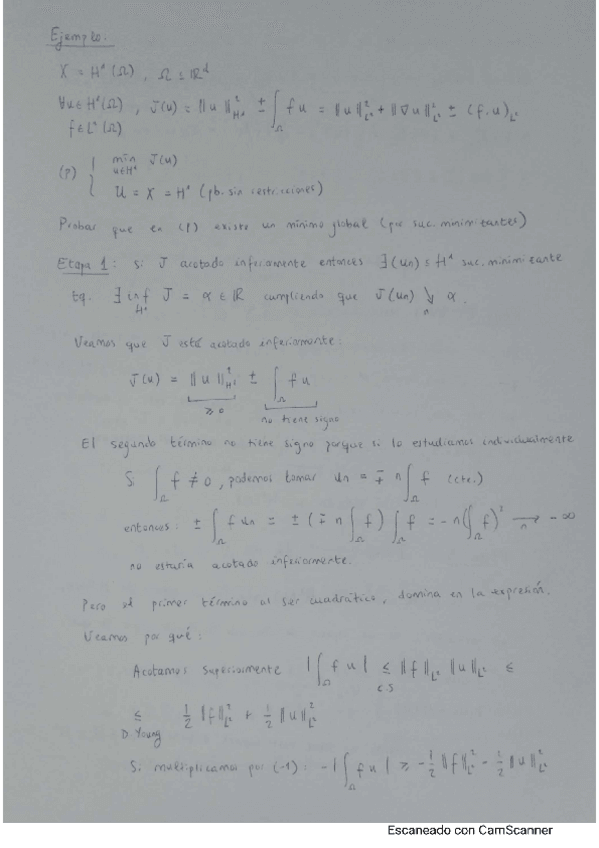 Ejemplo:
X = H¹(Ω), Ω ⊆ ℝᵈ
∀u∈H¹(Ω), J(u) = ‖u‖²_H¹ ± ∫_Ω f u = ‖u‖²_L² + ‖∇u‖²_L² ± (f,u)_L²
f∈L²(Ω)
(P) { min_{u∈H¹} J(u)
U = X = H¹ (pb. sin restricciones)
Probar que en (P) existe un mínimo global (por suc. minimizantes)
Etapa 1: Si J acotado inferiormente entonces ∃(un) ⊆ H¹ suc. minimizante
tq. ∃ inf_H¹ J = α ∈ ℝ cumpliendo que J(un) ↘_n α.
Veamos que J está acotado inferiormente:
J(u) = ‖u‖²_H¹ ± ∫_Ω f u
≥ 0 no tiene signo
El segundo término no tiene signo porque si lo estudiamos individualmente
Si ∫_Ω f ≠ 0, podemos tomar un = ∓ n ∫_Ω f (cte.)
entonces: ± ∫_Ω f un = ± (∓ n ∫_Ω f) ∫_Ω f = - n (∫_Ω f)² →_n - ∞
no estaría acotado inferiormente.
Pero el primer término al ser cuadrático, domina en la expresión.
Veamos por qué:
Acotamos superiormente |∫_Ω f u| ≤_{C.S} ‖f‖_L² ‖u‖_L² ≤
≤_{D. Young} ½ ‖f‖²_L² + ½ ‖u‖²_L²
Si multiplicamos por (-1): -|∫_Ω f u| ≥ -½ ‖f‖²_L² - ½ ‖u‖²_L²
Escaneado con CamScanner